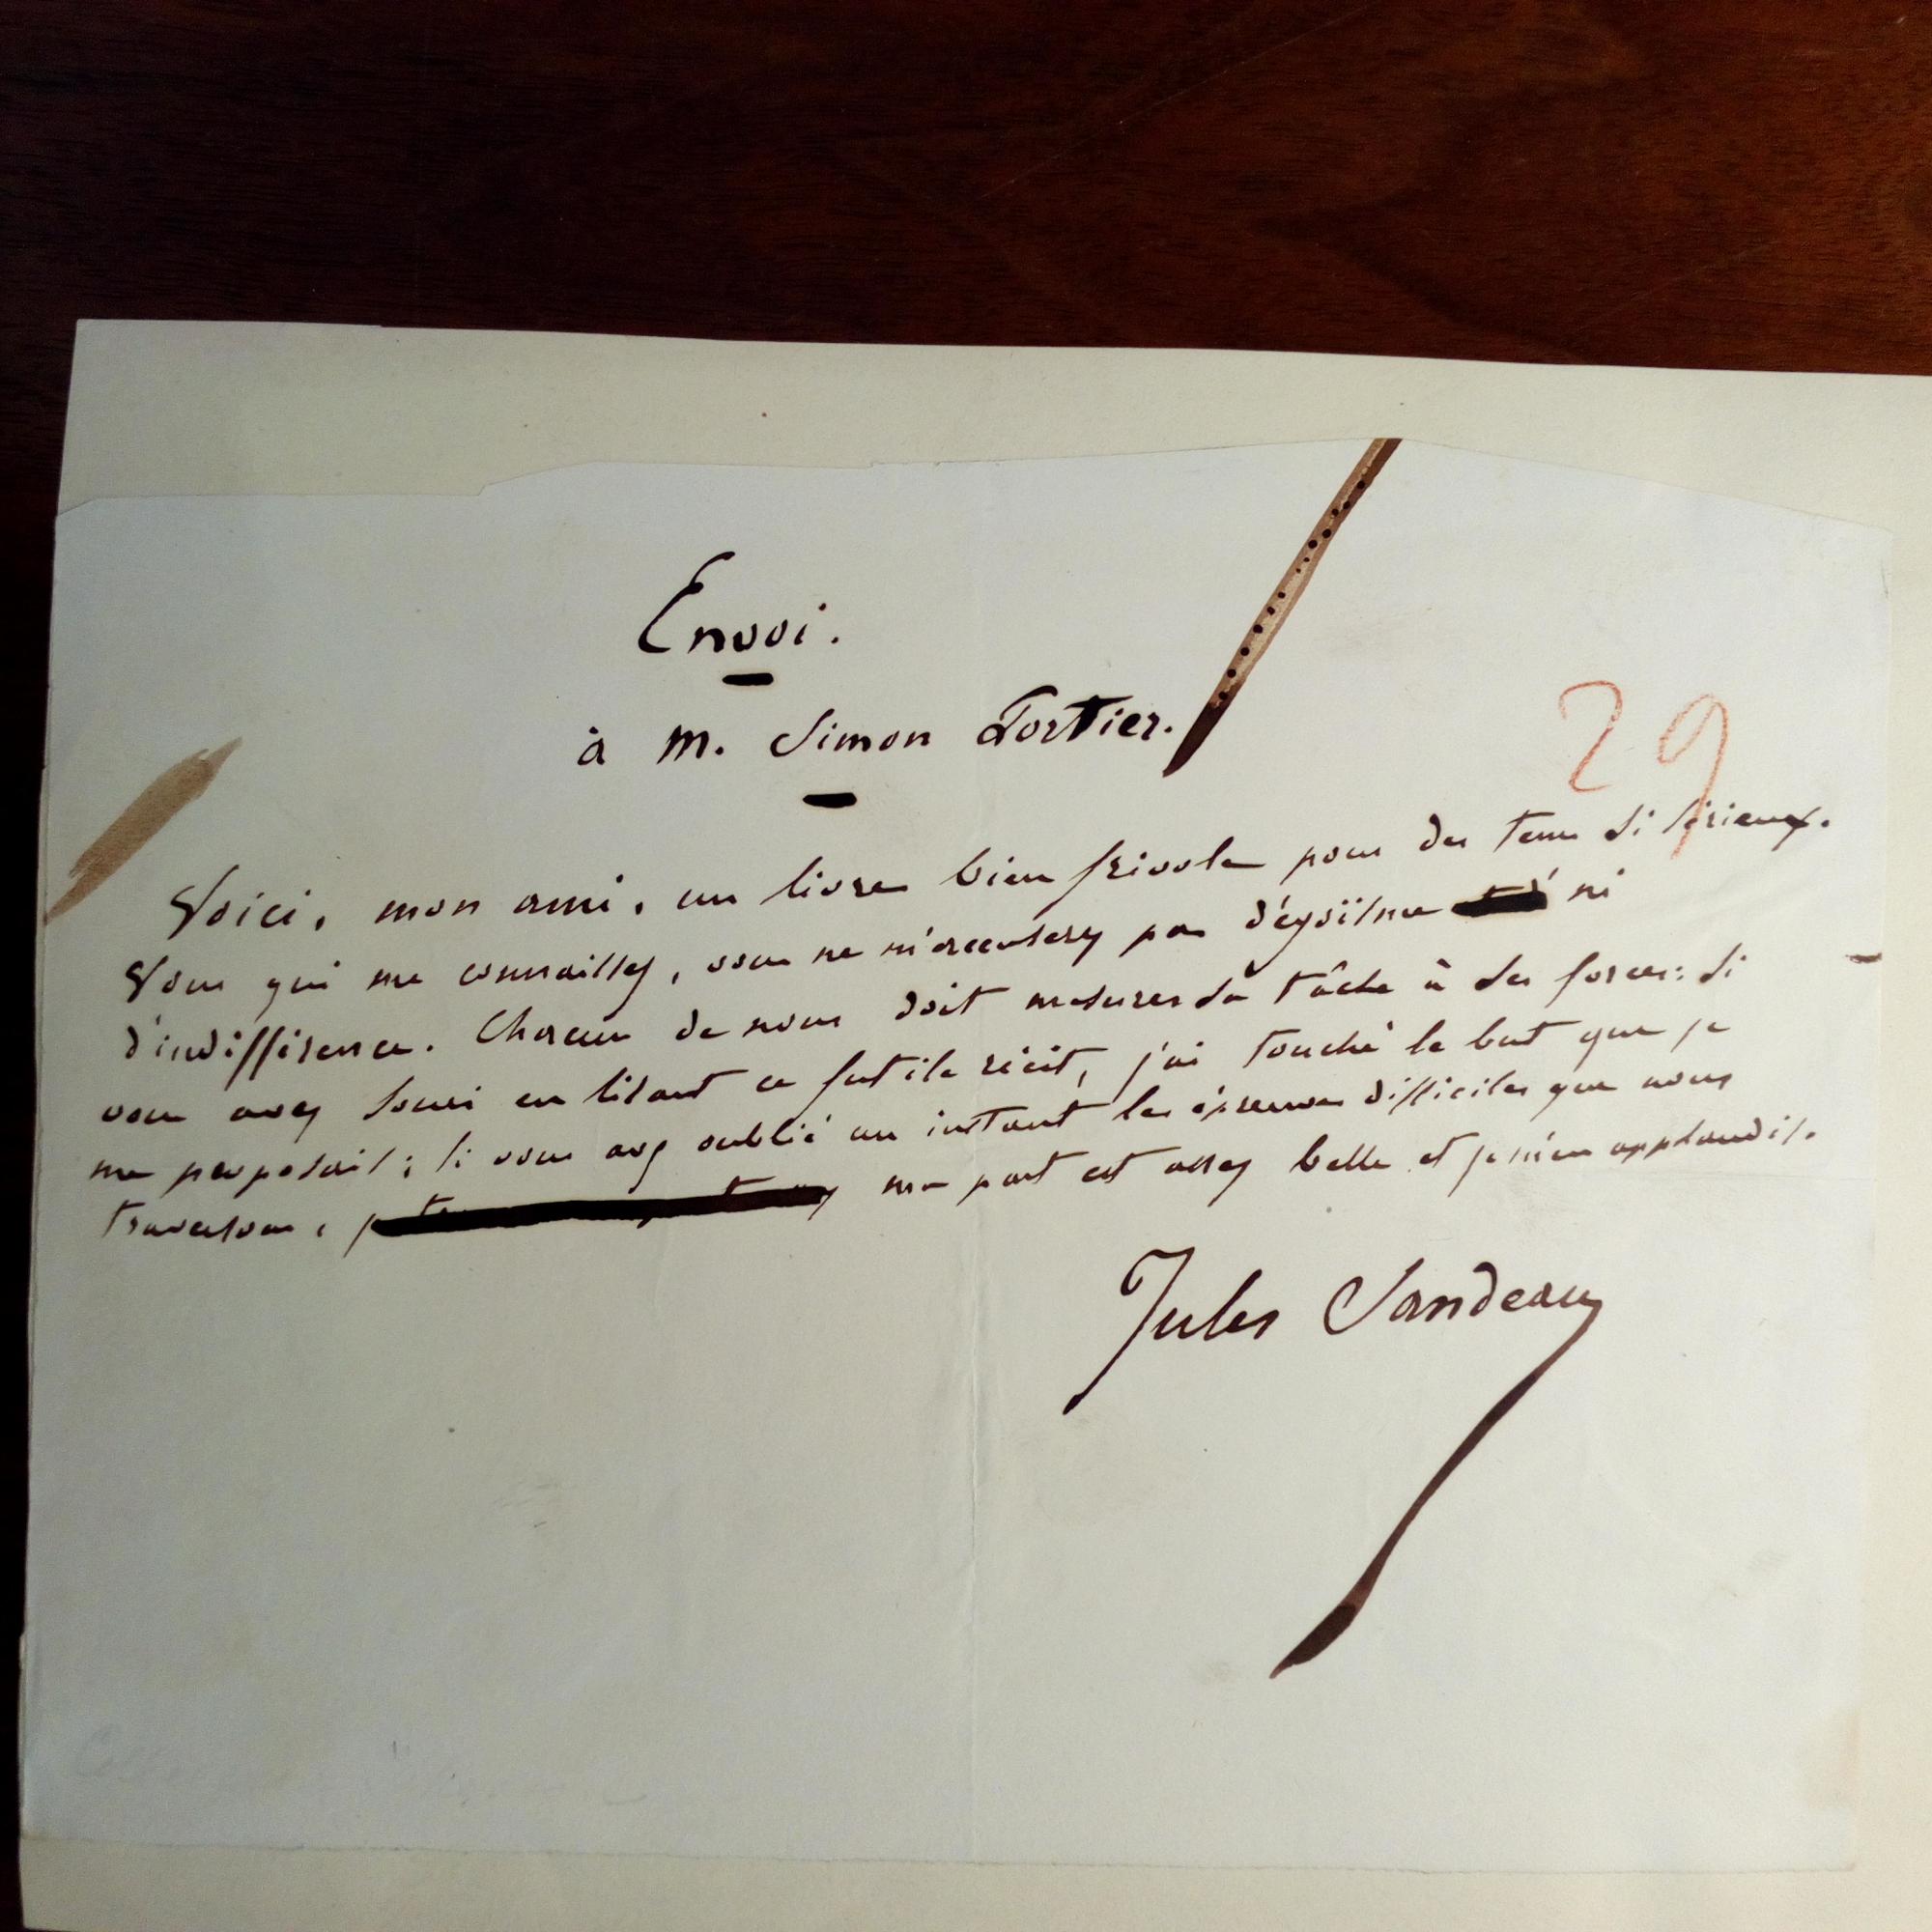 Envoi.
à M. Simon Fortier.
29
Voici, mon ami, un livre bien frivole pour des tems si sérieux.
Vous qui me connaissez, vous ne m'accuserez pas d'égoïsme ni
d'indifférence. Chacun de nous doit mesurer sa tâche à ses forces: si
vous avez souri en lisant ce futile récit, j'ai touché le but que je
me proposais; si vous avez oublié un instant les épreuves difficiles que nous
traversons, ma part est assez belle et je m'en applaudis.
Jules Sandeau